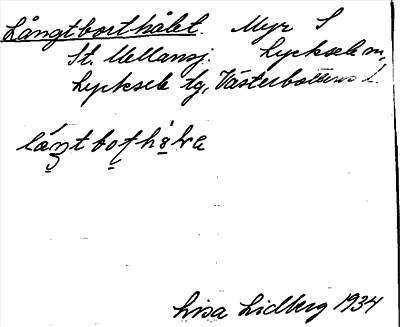 Långtborthålet. Myr S
St. Mellansj. Lycksele sn,
Lycksele tg, Västerbottens l.
Lisa Lidberg 1934